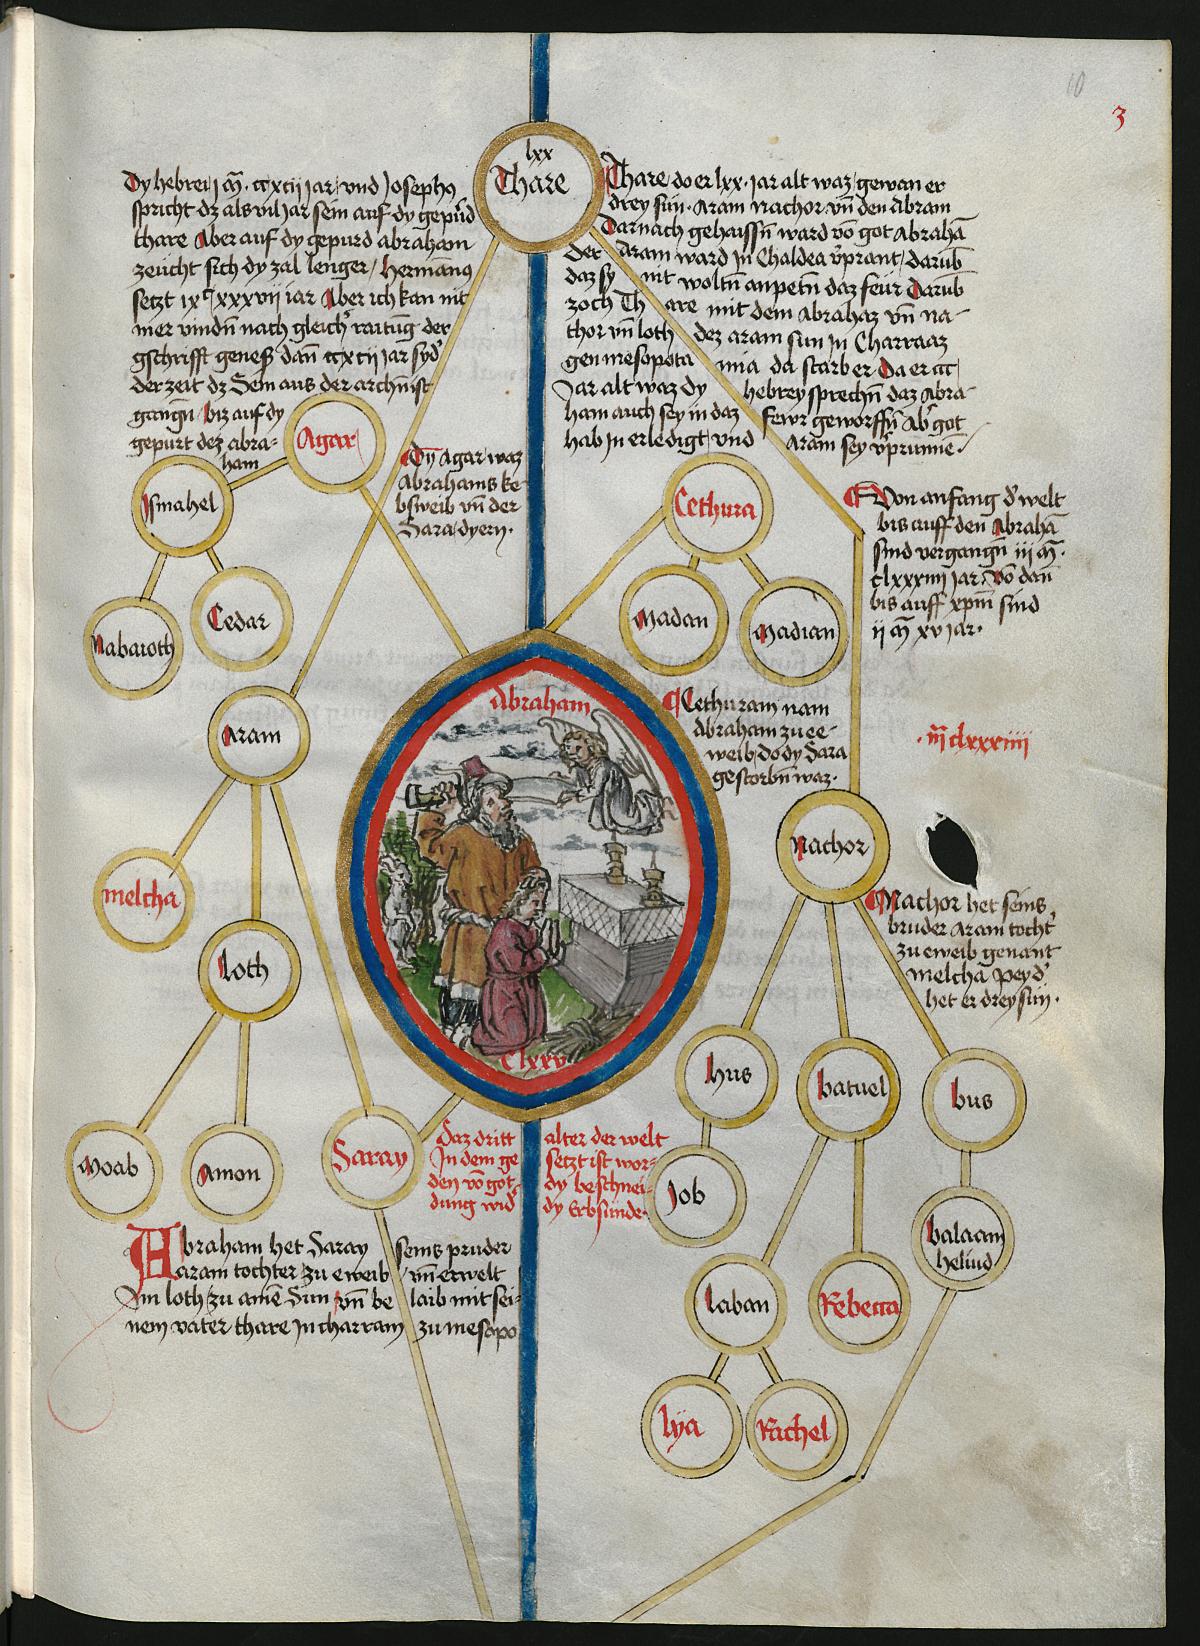 10
3
lxx
Thare
Dy hebrei j m̄. ccxcij jar, vnd Josephꝰ
spricht dz als vil jar sein auf dy gepurd
thare Aber auf dy gepurd abraham
zeücht sich dy zal lenger, hermanꝰ
setzt ixᶜ xxxvij iar Aber ich kan nit
mer vindn̄ nach gleich raitūg der
gschrifft genesz dan̄ ccxcij jar syd
der zeit dz Sem aus der archn̄ ist
gangn̄ biz auf dy
gepurt dez abra-
ham
Thare do er lxx. jar alt waz, gewan er
drey sün. Aram Nachor. vn̄ den Abram
Darnach gehaissn̄ ward vō got Abrahā
der Aram ward jn Chaldea vprant, darūb
daz sy nit woltn̄ anpetn̄ daz feür Darūb
zoch Thare mit dem Abrahaz vn̄ na-
chor vn̄ loth dez aram sun jn Charraaz
gen mesopotamia da starb er Da er cc
Jar alt waz dy hebrey sprechn̄ daz Abra-
ham auch sey in daz fewr geworffn̄ Ab got
hab jn erledigt, vnd Aram sey vprunnē.
Agar
Dy Agar waz
Abrahams ke
bsweib vn̄ der
Sara dyern.
Ismahel
Nabaroth
Cedar
Cethura
Madan
Madian
Von anfang d welt
bis auff den Abrahā
sind vergangn̄ iij m̄.
clxxxiiij jar. Vō dan̄
bis auff xp̄m̄ sind
ij m̄ xv jar.
Cethuram nam
Abraham zu ee-
weib, do dy Sara
gestorbn̄ waz.
iij m̄ clxxxiiij
Abraham
Clxxv
Aram
melcha
loth
Moab
Amon
Saray
Nachor
Nachor het seins
bruder Aram tocht
zu eweib genant
melcha Peyd
het er drey sün.
hus
batuel
bus
Job
balaam
heliud
laban
Rebecca
lya
Rachel
Daz dritt alter der welt
Jn dem ge setzt ist wor-
den vō got dy beschnei-
dung wid dy Erbsünde.
Abraham het Saray seins pruder
aram tochter zu eweib vn̄ erwelt
Jm loth zu aim̄ Sun vn̄ belaib mit sei-
nem vater thare Jn charram zu mesopo